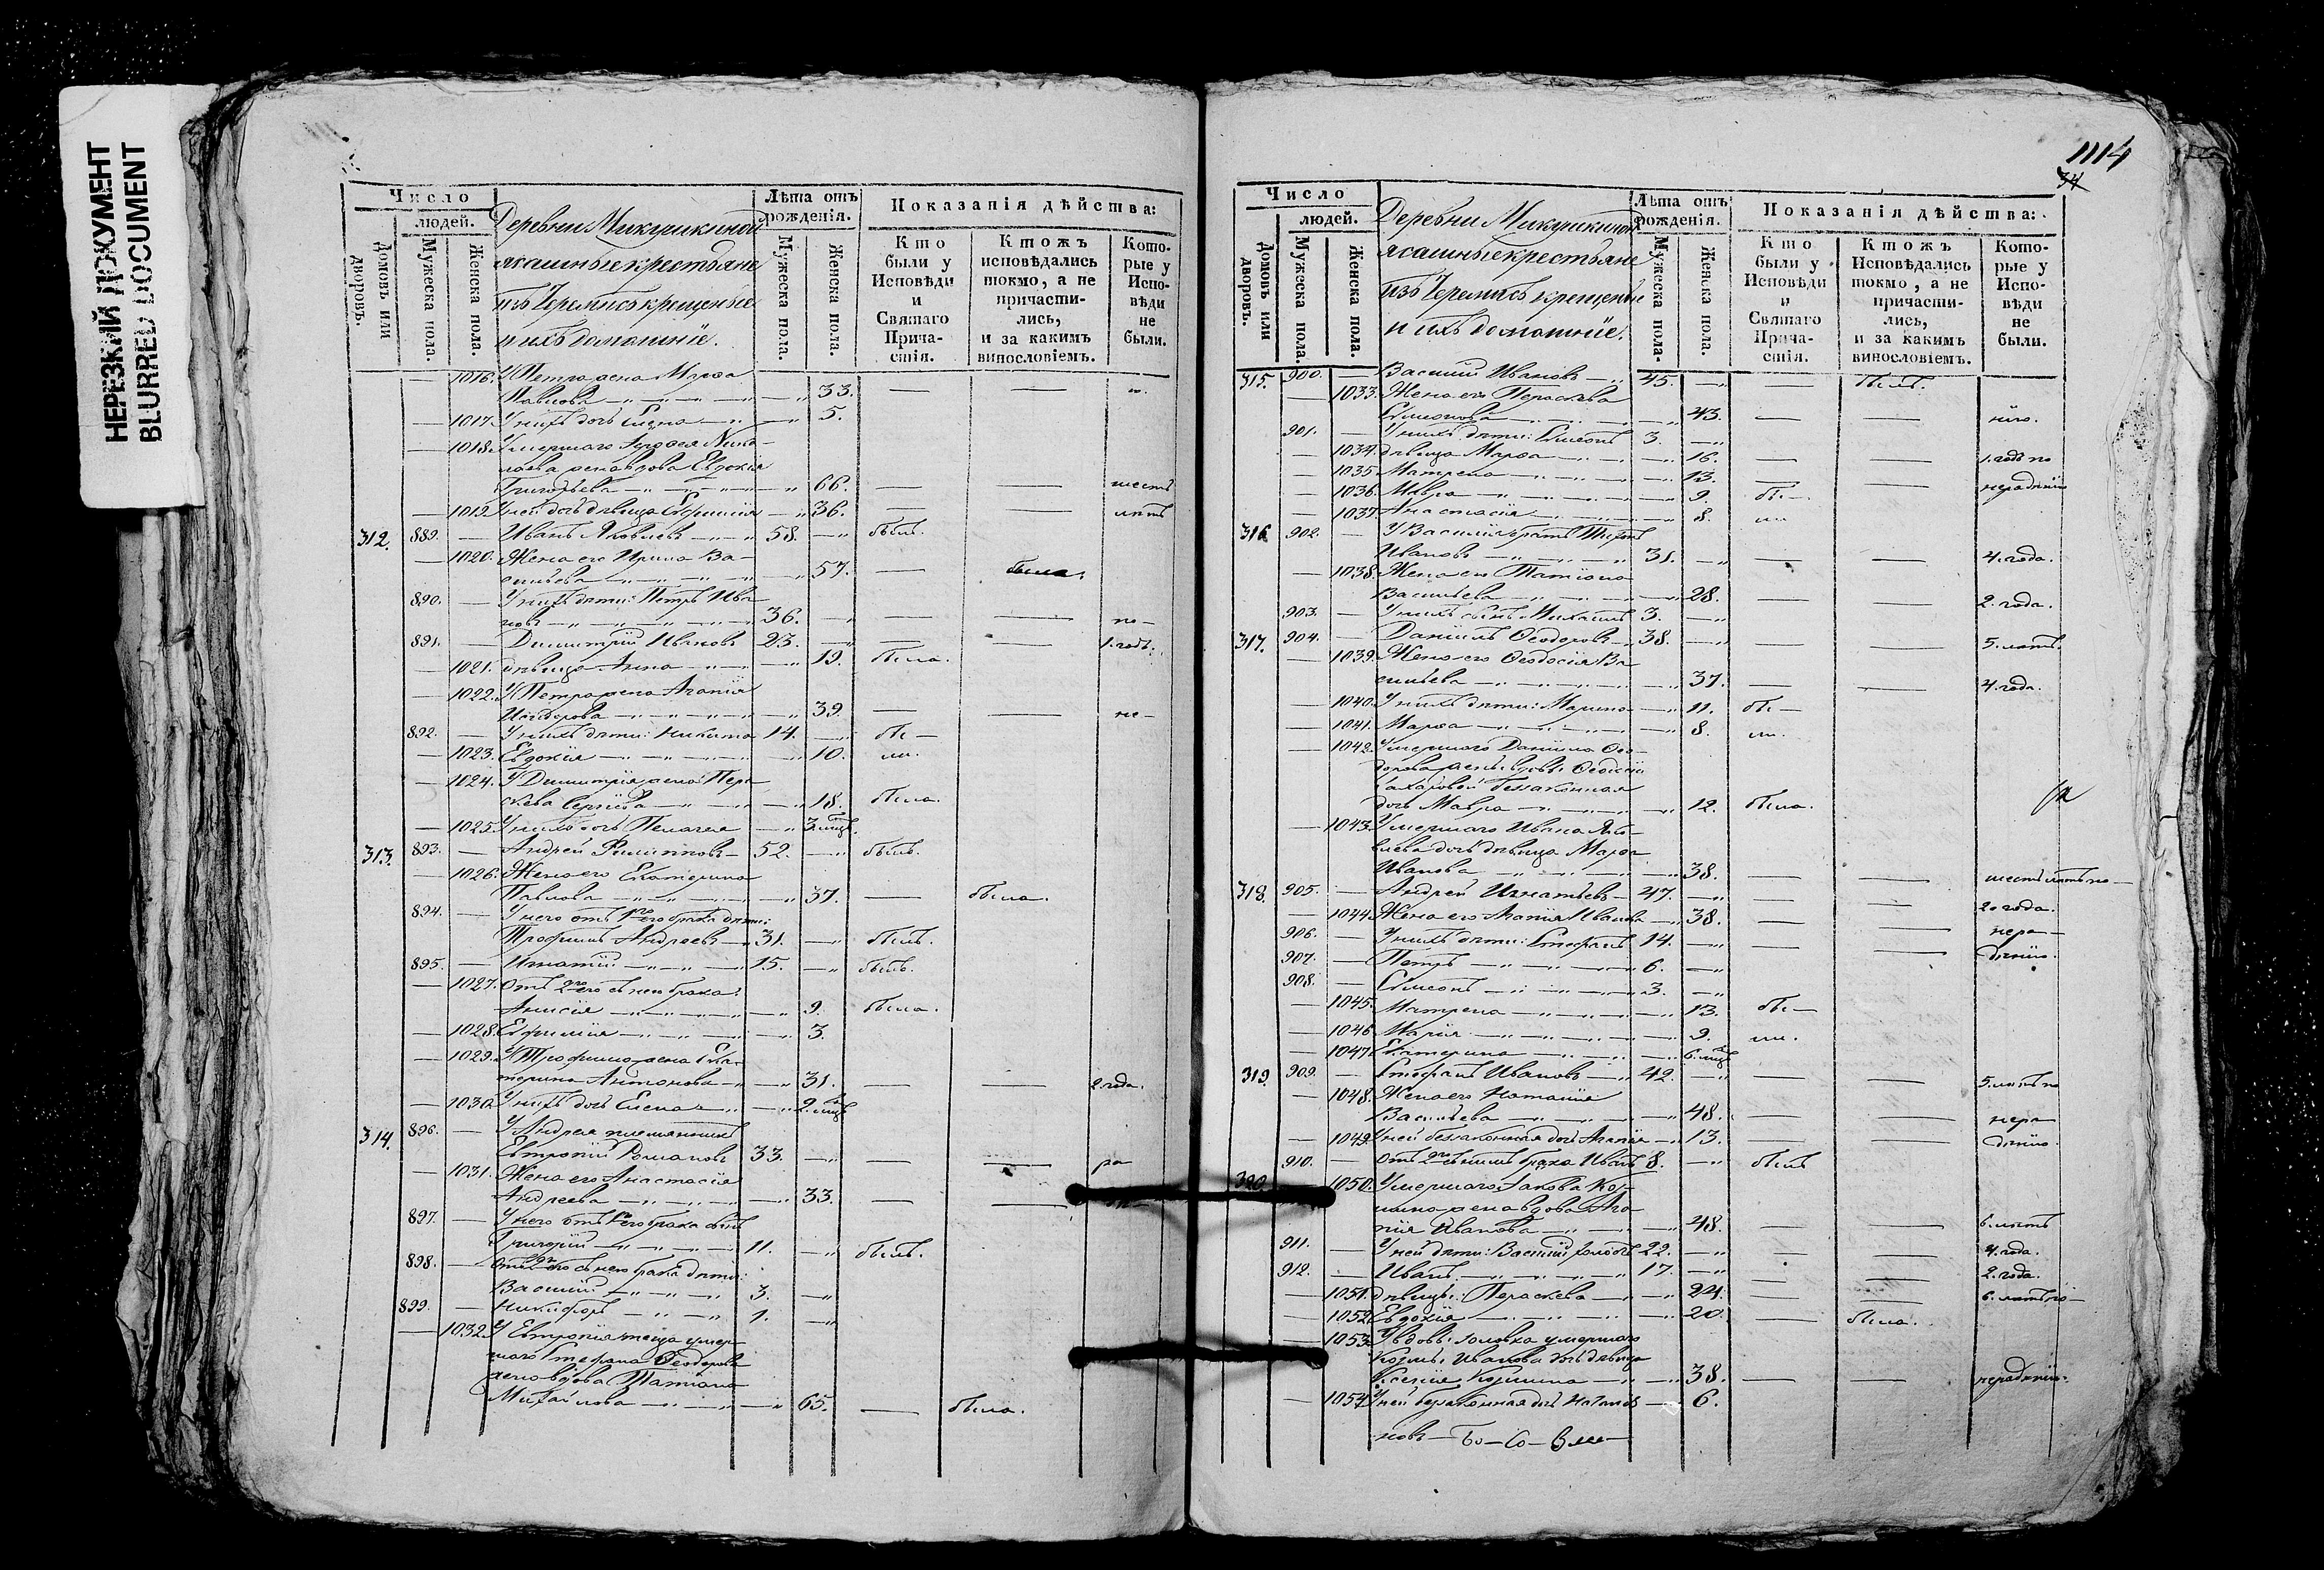 НЕРЕЗКИЙ ДОКУМЕНТ
BLURRED DOCUMENT
Число
людей.
Домовъ или дворовъ.
Мужеска пола.
Женска пола.
Деревни Микушкиной
ясашные крестьяне
изъ Черемисъ крещеные
и ихъ домашніе.
Лѣта отъ рожденія.
Мужеска пола.
Женска пола.
Показанія дѣйства:
Кто были у Исповѣди и Святаго Причастія.
Ктожъ исповѣдались токмо, а не причастились, и за какимъ винословіемъ.
Которые у Исповѣди не были.
1016. У Петра жена Марѳа
Павлова 33.
1017. У нихъ дочь Елена 5.
1018. Умершаго
жена вдова Евдокія
Григорьева 66. шесть
1019. У ней дочь дѣвица Евфимія 36. лѣтъ
312. 889. Иванъ Яковлевъ 58. былъ.
1020. Жена его Ирина Ва-
сильева 57. была.
890. У нихъ дѣти: Петръ Ива-
новъ 36. по-
891. Димитрій Ивановъ 23. 1. годъ.
1021. дѣвица Анна 19. была.
1022. У Петра жена Агапія
39. не-
892. У нихъ дѣти: Никита 14. бы-
1023. Евдокія 10. ли.
1024. У Димитрія жена Пара-
скева Сергіева 18. была.
1025. У нихъ дочь Пелагея 3. мцъ.
313. 893. Андрей Филипповъ 52. былъ.
1026. Жена его Екатерина
Павлова 37. была.
894. У него отъ 1го брака дѣти:
Трофимъ Андреевъ 31. былъ.
895. Игнатій 15. былъ.
1027. Отъ 2го съ нею брака:
Анисія 9. была.
1028. Евфимія 3.
1029. У Трофима жена Ека-
терина Антонова 31. 2 года.
1030. У нихъ дочь Елена 2. мцъ
314. 896. У Андрея племянникъ
Евтропій Романовъ 33. ра
1031. Жена его Анастасія
Андреева 33.
897. У него отъ 1го брака сынъ
Григорій 11. былъ.
898. Отъ 2го съ нею брака дѣти:
Василій 3.
899. Никифоръ 1.
1032. У Евтропія теща умер-
шаго Стефана Ѳеодорова
жена вдова Татіана
Михайлова 65. была.
1114
34
Число
людей.
Домовъ или дворовъ.
Мужеска пола.
Женска пола.
Деревни Микушкиной
ясашные крестьяне
изъ Черемисъ крещеные
и ихъ домашніе.
Лѣта отъ рожденія.
Мужеска пола.
Женска пола.
Показанія дѣйства:
Кто были у Исповѣди и Святаго Причастія.
Ктожъ Исповѣдались токмо, а не причастились, и за какимъ винословіемъ.
Которые у Исповѣди не были.
315. 900. Василій Ивановъ 45. былъ.
1033. Жена его Параскева
Симеонова 43. нію.
901. У нихъ дѣти: Симеонъ 3.
1034. дѣвица Марѳа 16. 1. годъ по
1035. Матрена 13. нерадѣнію
1036. Мавра 9. бы-
1037. Анастасія 8. ли
316. 902. У Василія братъ
Ивановъ 31. 4. года.
1038. Жена его Татіана
Васильева 28. 2. года.
903. У нихъ сынъ Михаилъ 3.
317. 904. Даніилъ Ѳеодоровъ 38. 5. лѣтъ.
1039. Жена его Ѳеодосія Ва-
сильева 37. 4. года.
1040. У нихъ дѣти: Марина 11. бы-
1041. Марѳа 8. ли.
1042. Умершаго Даніила Ѳео-
дорова жены вдовы Ѳеодосіи
Захаровой беззаконная
дочь Мавра 12. была.
1043. Умершаго Ивана Яко-
влева дочь дѣвица Марѳа
Иванова 38. шесть лѣтъ по-
318. 905. Андрей Игнатьевъ 47. 2. года.
1044. Жена его Агапія Иванова 38. нера-
906. У нихъ дѣти: Стефанъ 14. дѣнію.
907. Петръ 6.
908. Симеонъ 3.
1045. Матрена 13. бы-
1046. Марія 9. ли.
1047. Екатерина 6. мцъ
319. 909. Стефанъ Ивановъ 42. 5. лѣтъ по
1048. Жена его Наталія
Васильева 48. нера
1049. У ней беззаконная дочь Агапія 13. дѣнію
910. Отъ 2го съ нимъ брака Иванъ 8. былъ
320. 1050. Умершаго Іакова Коз-
мина жена вдова Ага-
пія Иванова 48. 6. лѣтъ
911. У ней дѣти: Василій 22. 4. года.
912. Иванъ 17. 2. года.
1051. дѣвицы: Параскева 24. 6. лѣтъ по-
1052. Евдокія 20. была.
1053. У вдовы золовка умершаго
Козмы Иванова дочь дѣвица
Ксенія Козмина 38. нерадѣнію.
1054. У ней беззаконная дочь 6.